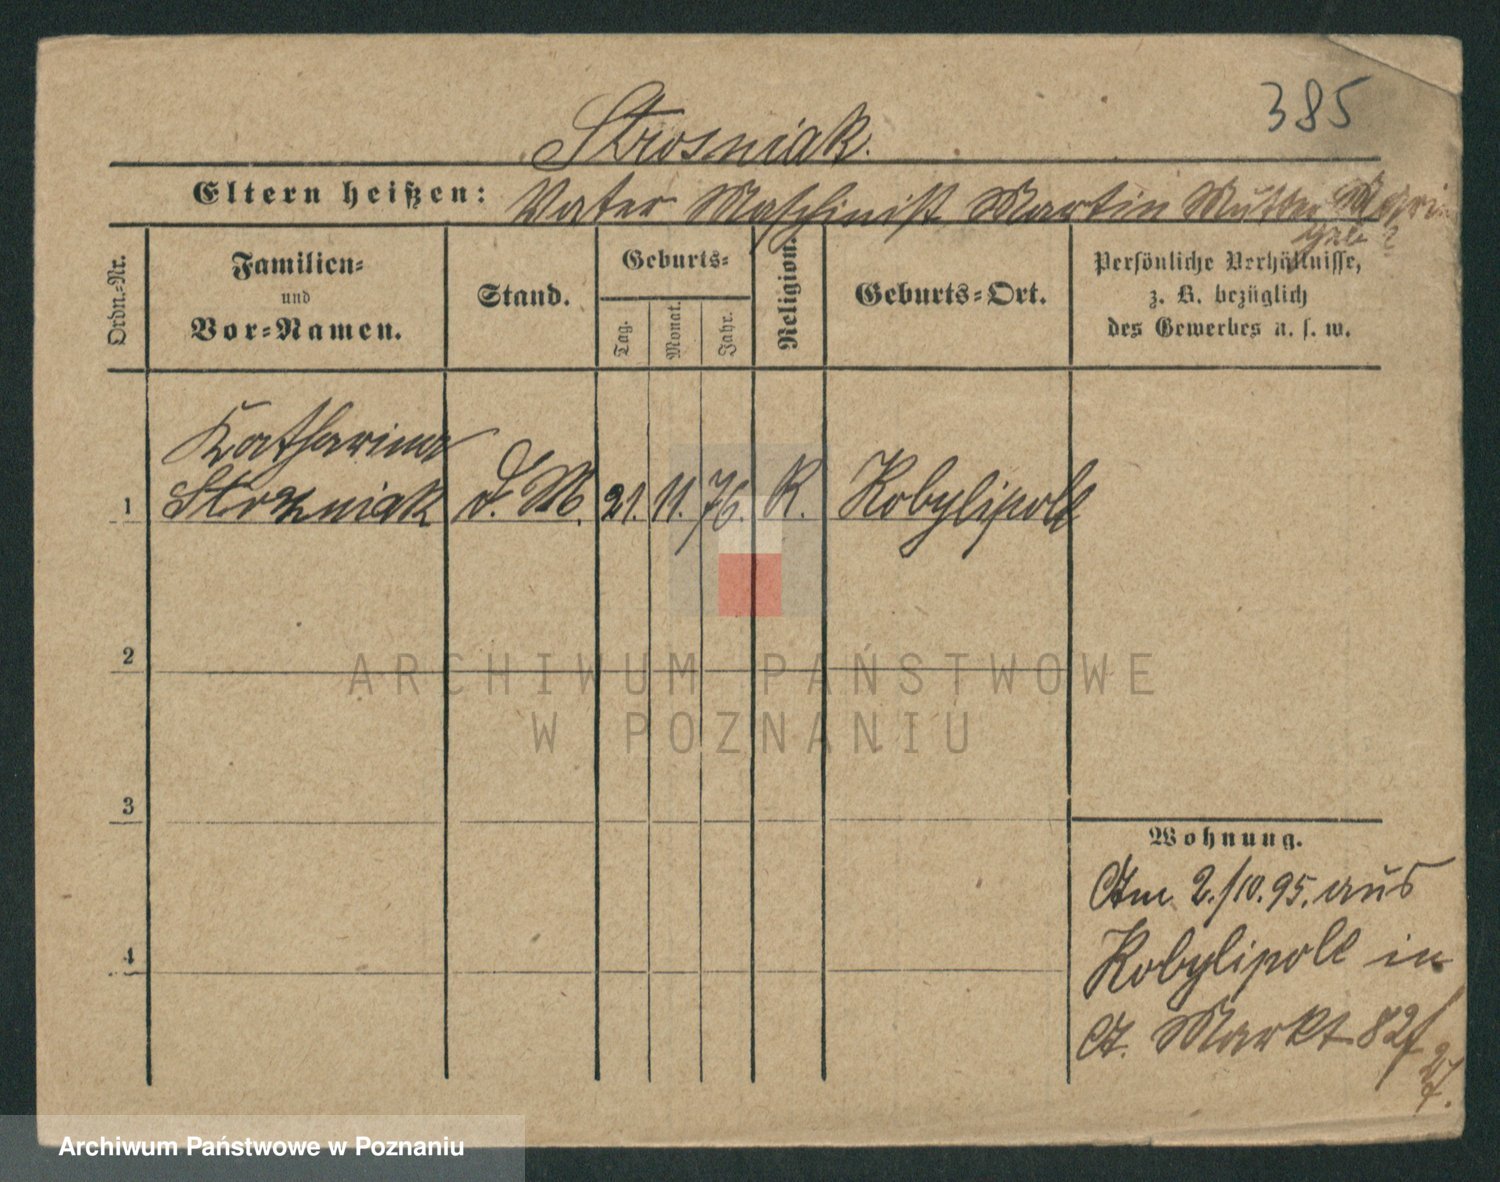 385
Strosniak.
Eltern heißen: Vater Maschinist Martin Mutter
Ordn.-Nr.
Familien-
und
Vor-Namen.
Stand.
Geburts-
Tag.
Monat.
Jahr.
Religion.
Geburts-Ort.
Persönliche Verhältnisse,
z. B. bezüglich
des Gewerbes u. s. w.
Katharina
1 Strozniak d. M. 21. 11. 76. K. Kobylipole
2
3
4
Wohnung.
Am 2./10.95. aus
Kobylipole in
A. Markt 82
ARCHIWUM PAŃSTWOWE
W POZNANIU
Archiwum Państwowe w Poznaniu